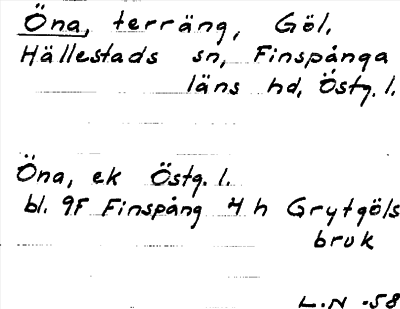 Öna, terräng, Göl.
Hällestads sn, Finspånga
läns hd, Östg. l.
Öna, ek Östg. l.
bl. 9F Finspång 4 h Grytgöls
bruk
L.N -58